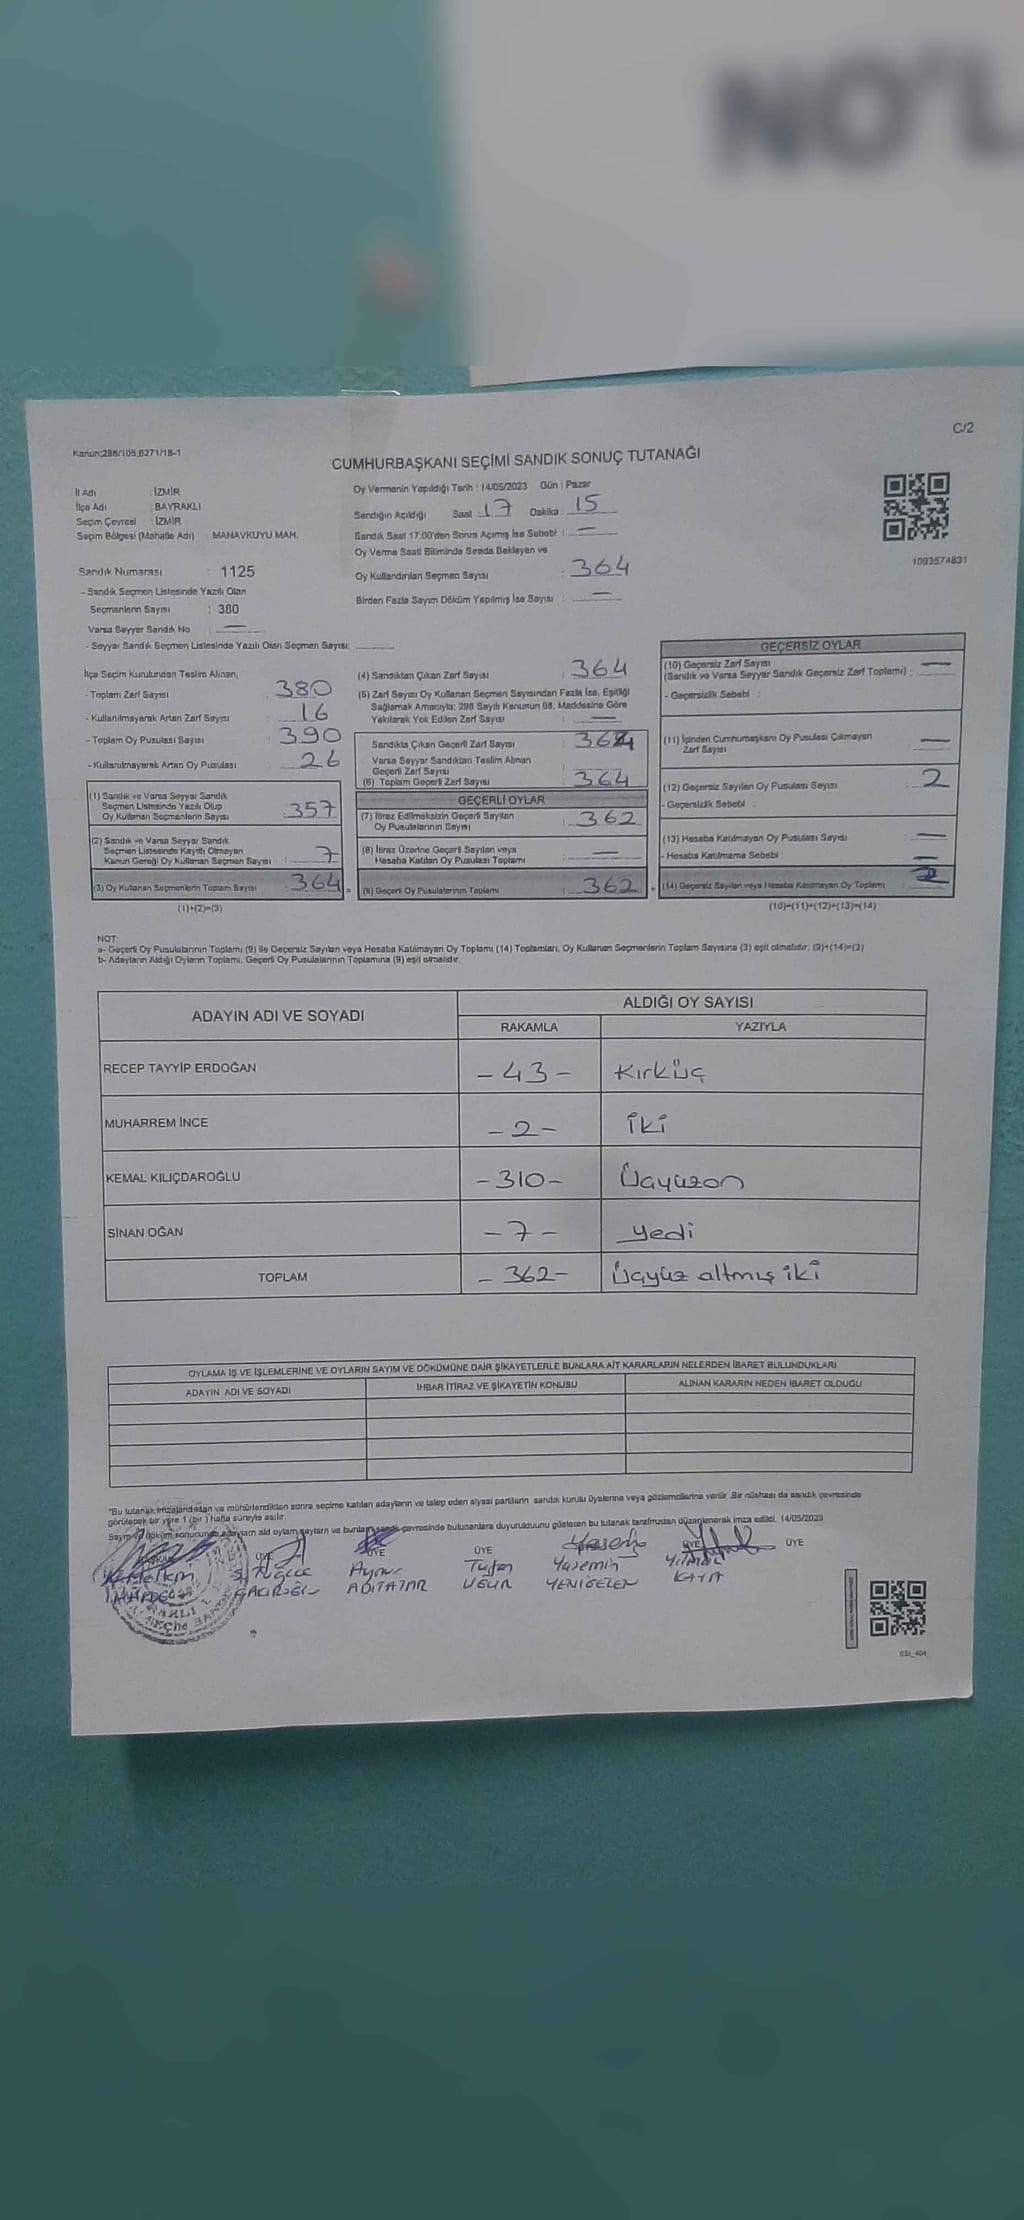 NO'L
C/2
Kanun;298/105,6271/18-1
CUMHURBAŞKANI SEÇİMİ SANDIK SONUÇ TUTANAĞI
İl Adı : İZMİR
İlçe Adı : BAYRAKLI
Seçim Çevresi : İZMİR
Seçim Bölgesi (Mahalle Adı) : MANAVKUYU MAH.
Sandık Numarası : 1125
- Sandık Seçmen Listesinde Yazılı Olan
Seçmenlerin Sayısı : 380
Varsa Seyyar Sandık No : —
- Seyyar Sandık Seçmen Listesinde Yazılı Olan Seçmen Sayısı:
Oy Vermenin Yapıldığı Tarih : 14/05/2023 Gün : Pazar
Sandığın Açıldığı Saat : 17 Dakika : 15
Sandık Saat 17.00'den Sonra Açımış İse Sebebi : —
Oy Verme Saati Bitiminde Sırada Bekleyen ve
Oy Kullandırılan Seçmen Sayısı : 364
Birden Fazla Sayım Döküm Yapılmış İse Sayısı : —
1093574831
İlçe Seçim Kurulundan Teslim Alınan;
- Toplam Zarf Sayısı : 380
- Kullanılmayarak Artan Zarf Sayısı : 16
- Toplam Oy Pusulası Sayısı : 390
- Kullanılmayarak Artan Oy Pusulası : 26
(1) Sandık ve Varsa Seyyar Sandık
Seçmen Listesinde Yazılı Olup
Oy Kullanan Seçmenlerin Sayısı : 357
(2) Sandık ve Varsa Seyyar Sandık
Seçmen Listesinde Kayıtlı Olmayan
Kanun Gereği Oy Kullanan Seçmen Sayısı : 7
(3) Oy Kullanan Seçmenlerin Toplam Sayısı : 364
(1)+(2)=(3)
(4) Sandıktan Çıkan Zarf Sayısı : 364
(5) Zarf Sayısı Oy Kullanan Seçmen Sayısından Fazla İse, Eşitliği
Sağlamak Amacıyla; 298 Sayılı Kanunun 98. Maddesine Göre
Yakılarak Yok Edilen Zarf Sayısı : —
Sandıkta Çıkan Geçerli Zarf Sayısı : 364
Varsa Seyyar Sandıktan Teslim Alınan
Geçerli Zarf Sayısı
(6) Toplam Geçerli Zarf Sayısı : 364
GEÇERLİ OYLAR
(7) İtiraz Edilmeksizin Geçerli Sayılan
Oy Pusulalarının Sayısı : 362
(8) İtiraz Üzerine Geçerli Sayılan veya
Hesaba Katılan Oy Pusulası Toplamı : —
(9) Geçerli Oy Pusulalarının Toplamı : 362
GEÇERSİZ OYLAR
(10) Geçersiz Zarf Sayısı
(Sandık ve Varsa Seyyar Sandık Geçersiz Zarf Toplamı) : —
- Geçersizlik Sebebi :
(11) İçinden Cumhurbaşkanı Oy Pusulası Çıkmayan
Zarf Sayısı : —
(12) Geçersiz Sayılan Oy Pusulası Sayısı : 2
- Geçersizlik Sebebi :
(13) Hesaba Katılmayan Oy Pusulası Sayısı : —
- Hesaba Katılmama Sebebi : —
(14) Geçersiz Sayılan veya Hesaba Katılmayan Oy Toplamı : 2
(10)+(11)+(12)+(13)=(14)
NOT:
a- Geçerli Oy Pusulalarının Toplamı (9) ile Geçersiz Sayılan veya Hesaba Katılmayan Oy Toplamı (14) Toplamları, Oy Kullanan Seçmenlerin Toplam Sayısına (3) eşit olmalıdır. (9)+(14)=(3)
b- Adayların Aldığı Oyların Toplamı, Geçerli Oy Pusulalarının Toplamına (9) eşit olmalıdır.
ADAYIN ADI VE SOYADI ALDIĞI OY SAYISI
RAKAMLA YAZIYLA
RECEP TAYYİP ERDOĞAN -43- Kırküç
MUHARREM İNCE -2- İki
KEMAL KILIÇDAROĞLU -310- Üçyüzon
SİNAN OĞAN -7- yedi
TOPLAM -362- Üçyüz altmış iki
OYLAMA İŞ VE İŞLEMLERİNE VE OYLARIN SAYIM VE DÖKÜMÜNE DAİR ŞİKAYETLERLE BUNLARA AİT KARARLARIN NELERDEN İBARET BULUNDUKLARI
ADAYIN ADI VE SOYADI İHBAR İTİRAZ VE ŞİKAYETİN KONUSU ALINAN KARARIN NEDEN İBARET OLDUĞU
"Bu tutanak imzalandıktan ve mühürlendikten sonra seçime katılan adayların ve talep eden siyasi partilerin sandık kurulu üyelerine veya gözlemcilerine verilir. Bir nüshası da sandık çevresinde
görülecek bir yere 1 (bir) hafta süreyle asılır.
Sayım ve döküm sonucunda adayların aldığı oyların sayıları ve bunların sandık çevresinde bulunanlara duyurulduunu gösteren bu tutanak tarafımızdan düzenlenerek imza edildi. 14/05/2023
ÜYE ÜYE ÜYE ÜYE ÜYE
Aynur Tufan Yasemin Yılmaz
UĞUR YENİGELEN KAYA